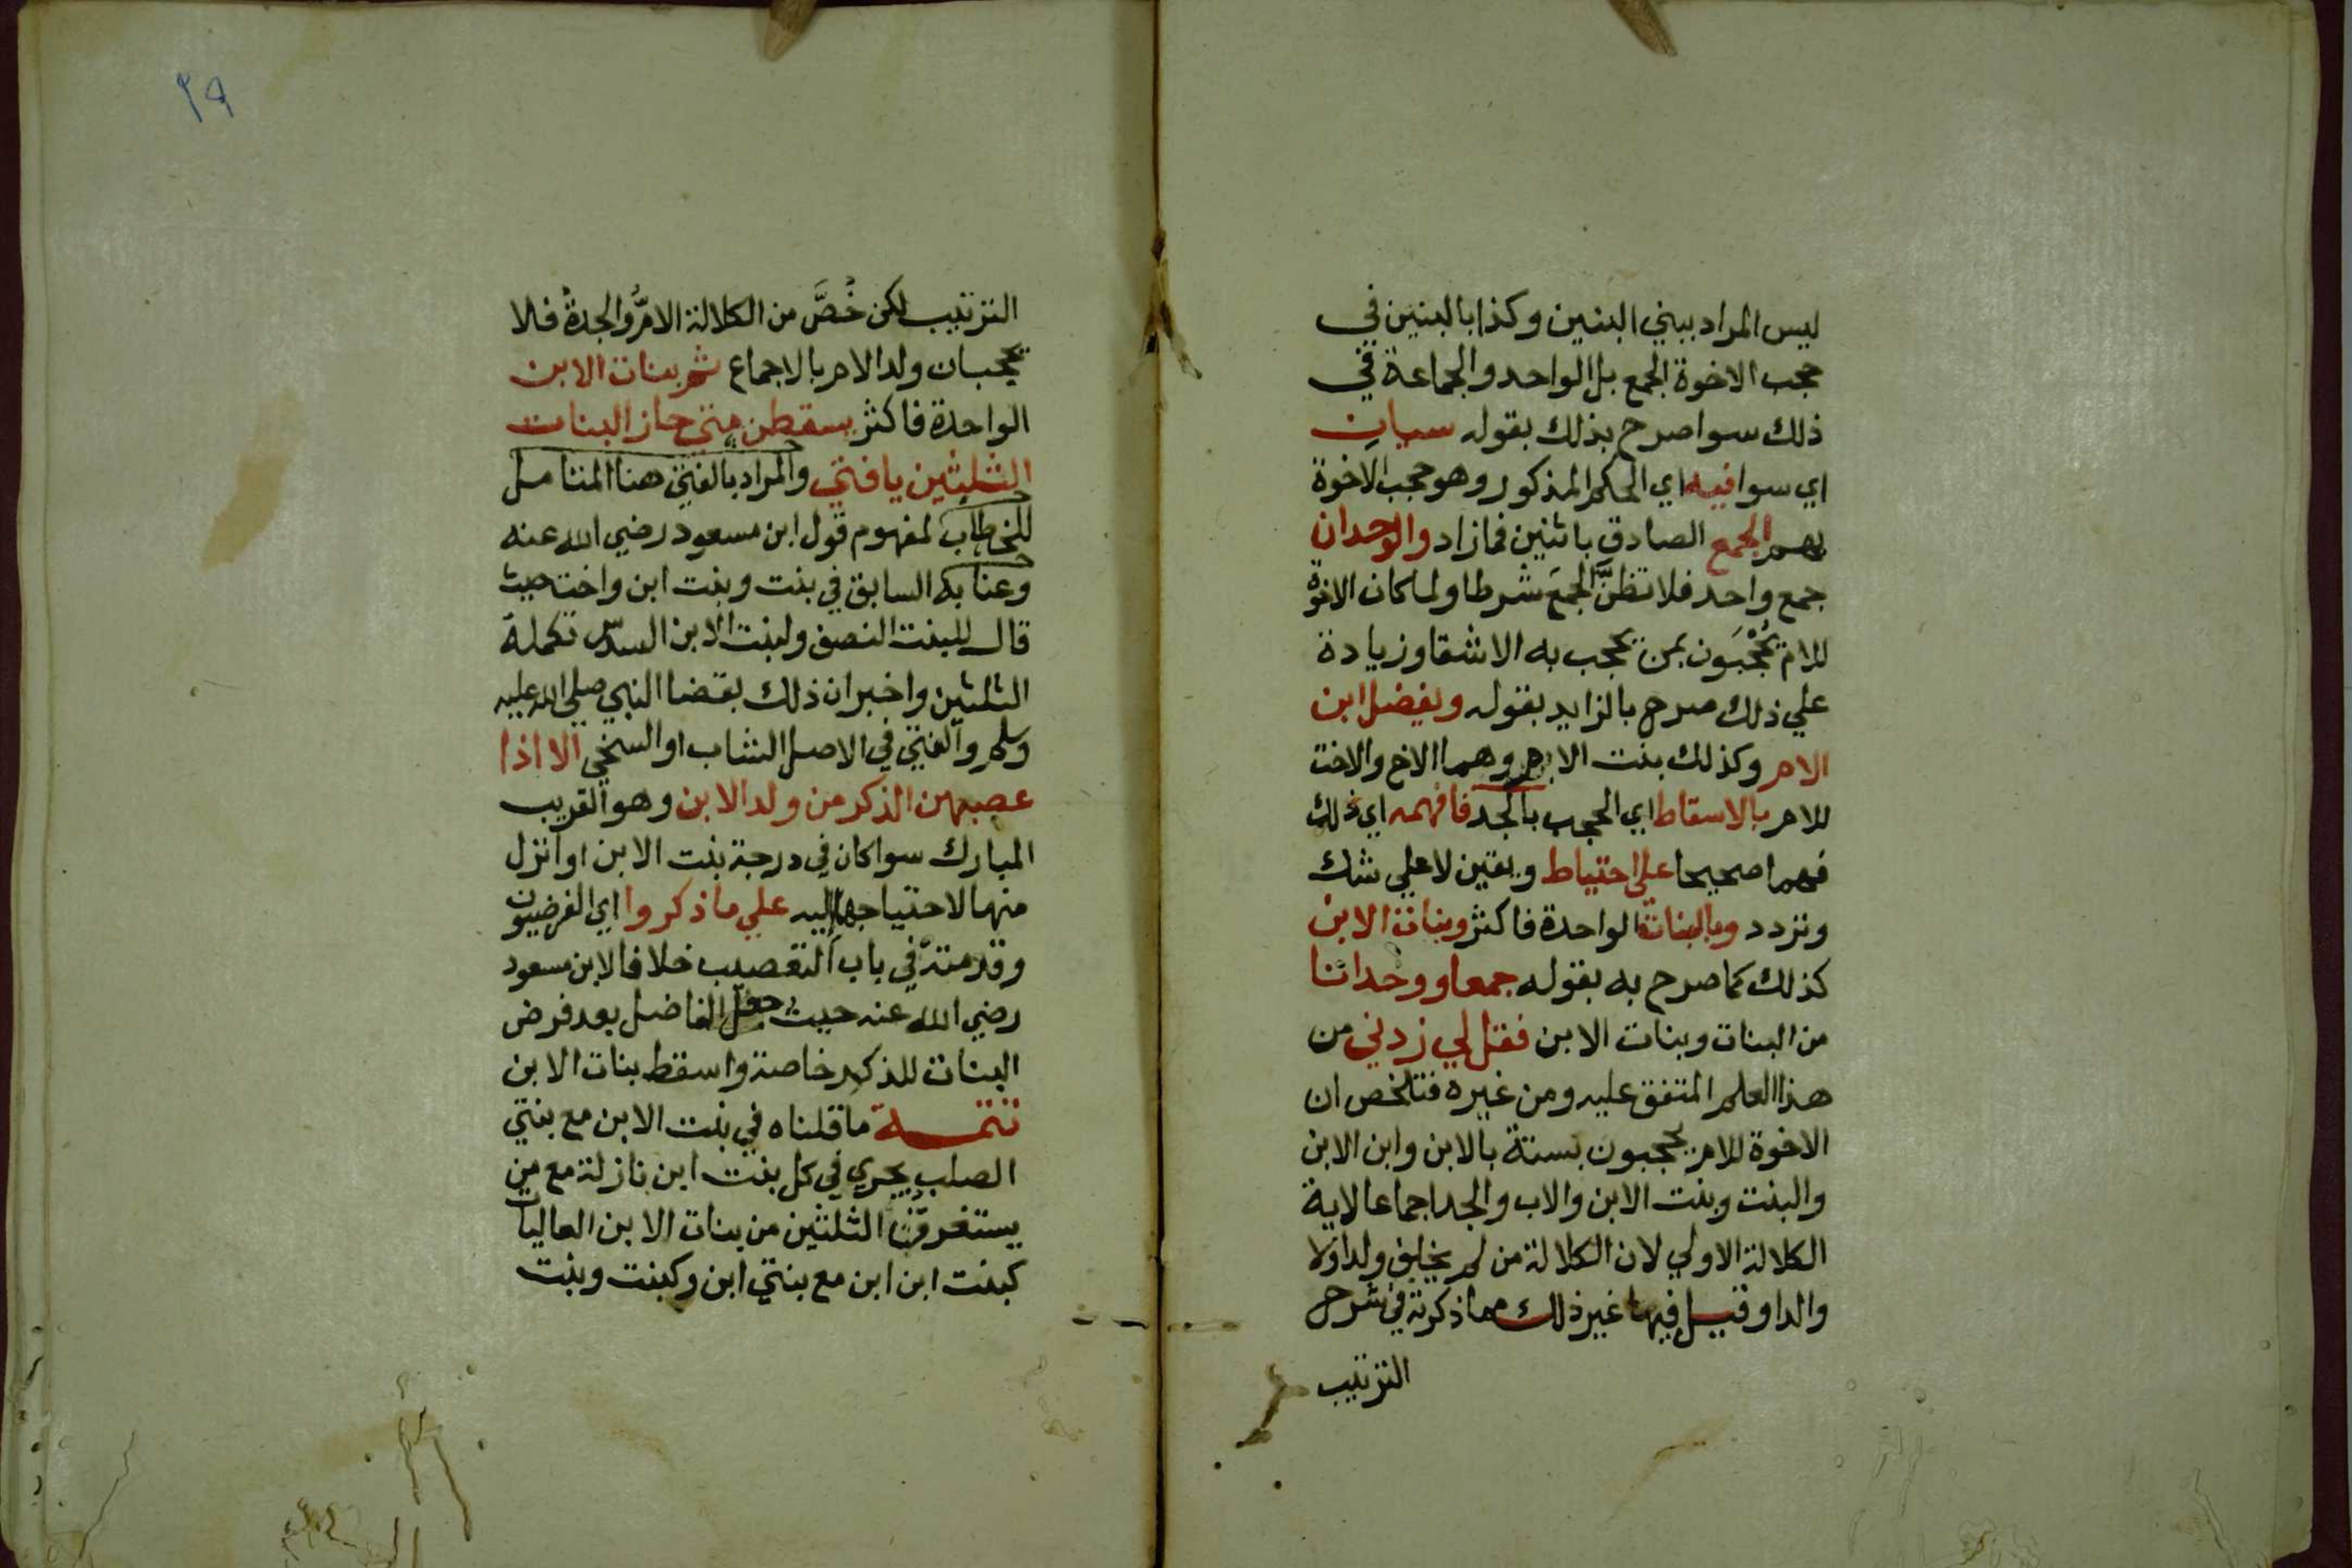 ليس المراد ببني البنين وكذا بالبنين في
حجب الاخوة الجمع بل الواحد والجماعة في
ذلك سوا صرح بذلك بقوله سيان
اي سوا فيه اي الحكم المذكور وهو حجب الاخوة
بهم الجمع الصادق باثنين فما زاد والوحدان
جمع واحد فلا تظنَّ الجمعَ شرطا ولما كان الاخوة
للام يُحْجَبون بمن يحجب به الاشقا وزيادة
علي ذلك صرح بالزايد بقوله ويفضل ابن
الام وكذلك بنت الام وهما الاخ والاخت
للام بالاسقاط اي الحجب بالجد فافهمه اي ذلك
فهما صحيحا علي احتياط ويقين لا علي شك
وتردد وبالبنات الواحدة فاكثر وبنات الابن
كذلك كما صرح به بقوله جمعا ووحدانا
من البنات وبنات الابن فقل لي زدني من
هذا العلم المتفق عليه ومن غيره فتلخص ان
الاخوة للام يحجبون بستة بالابن وابن الابن
والبنت وبنت الابن والاب والجد اجماعا لاية
الكلالة الاولي لان الكلالة من لم يخلف ولدا ولا
والدا وقيل فيها غير ذلك مما ذكرته في شرح
الترتيب
٢٩
الترتيب لكن خُصَّ من الكلالة الامُّ والجدةُ فلا
يحجبان ولد الام بالاجماع ثم بنات الابن
الواحدة فاكثر يسقطن متي حاز البنات
الثلثين يا فتي والمراد بالفتي هنا المتامل
للخطاب لمفهوم قول ابن مسعود رضي الله عنه
وعنا به السابق في بنت وبنت ابن واخت حيث
قال للبنت النصف ولبنت الابن السدس تكملة
الثلثين واخبر ان ذلك بقضا النبي صلي الله عليه
وسلم والفتي في الاصل الشاب او السخي الا اذا
عصبهن الذكر من ولد الابن وهو القريب
المبارك سوا كان في درجة بنت الابن او انزل
منها لاحتياجها اليه علي ما ذكروا اي الفرضيون
وقدمته في باب التعصيب خلافا لابن مسعود
رضي الله عنه حيث جعل الفاضل بعد فرض
البنات للذكر خاصة واسقط بنات الابن
تتمة ما قلناه في بنت الابن مع بنتي
الصلب يجري في كل بنت ابن نازلة مع من
يستغرقن الثلثين من بنات الابن العاليات
كبنت ابن ابن مع بنتي ابن وكبنت وبنت